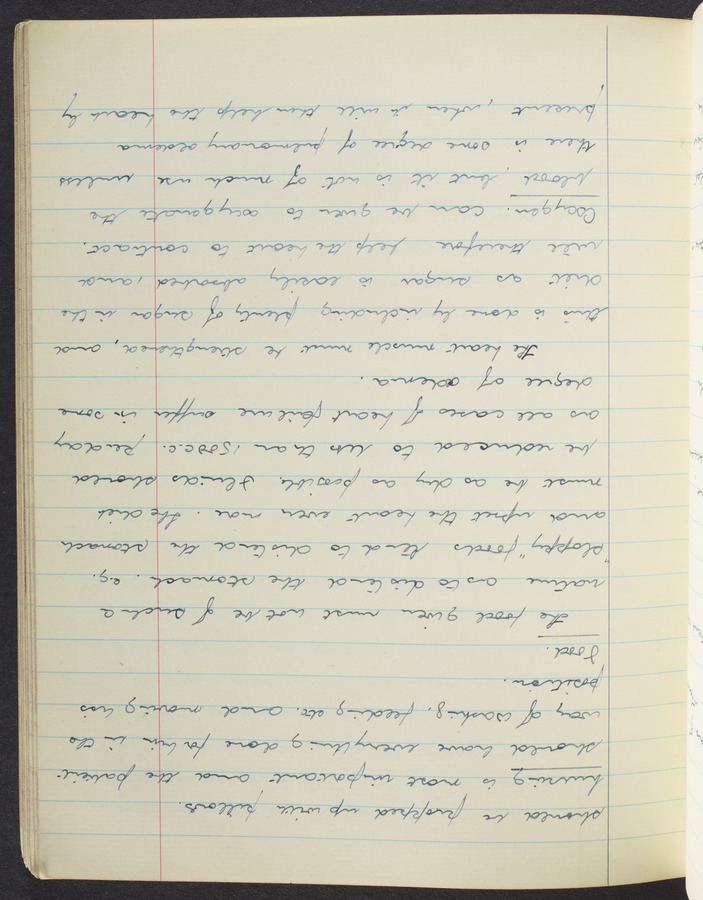 should be propped up with pillows.
Nursing is most important and the patient
should have everything done for him in the
way of washing, feeding etc. and moving his
position.
Food.
The food given must not be of such a
nature as to distend the stomach. eg.
"sloppy" foods tend to distend the stomach
and upset the heart even more. The diet
must be as dry as possible. Fluids should
be reduced to less than 1500 c.c. per day
as all cases of heart failure suffer in some
degree of odema.
The heart muscle must be strengthened, and
this is done by including plenty of sugar in the
diet as sugar is easily absorbed, and
will therefore help the heart to contract.
Oxygen. Can be given to oxygenate the
blood, but it is not of much use unless
there is some degree of pulmonary oedema
present, when it will then help the heart by